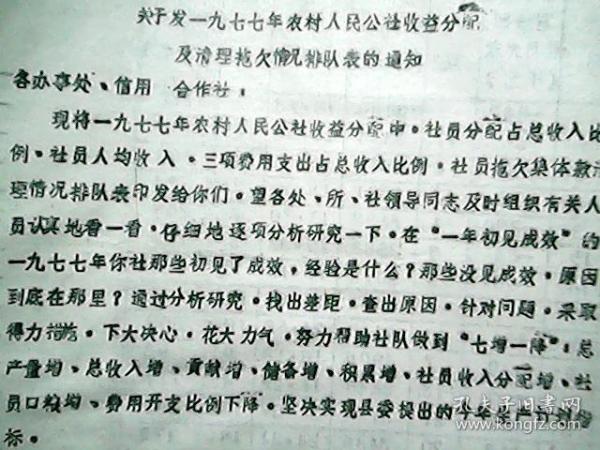 关于发一九七七年农村人民公社收益分配
及清理拖欠情况排队表的通知
各办事处、信用 合作社：
现将一九七七年农村人民公社收益分配中·社员分配占总收入比
例·社员人均收入·三项费用支出占总收入比例·社员拖欠集体款清
理情况排队表印发给你们·望各处、所、社领导同志及时组织有关人
员认真地看一看·仔细地逐项分析研究一下·在“一年初见成效”的
一九七七年你社那些初见了成效，经验是什么？那些没见成效·原因
到底在那里？通过分析研究·找出差距·查出原因·针对问题·采取
得力措施·下大决心·花大力气·努力帮助社队做到“七增一降”：总
产量增、总收入增、贡献增、储备增、积累增、社员收入分配增、社
员口粮增、费用开支比例下降·坚决实现县委提出的今年生产计划
标。
孔夫子旧书网
www.kongfz.com